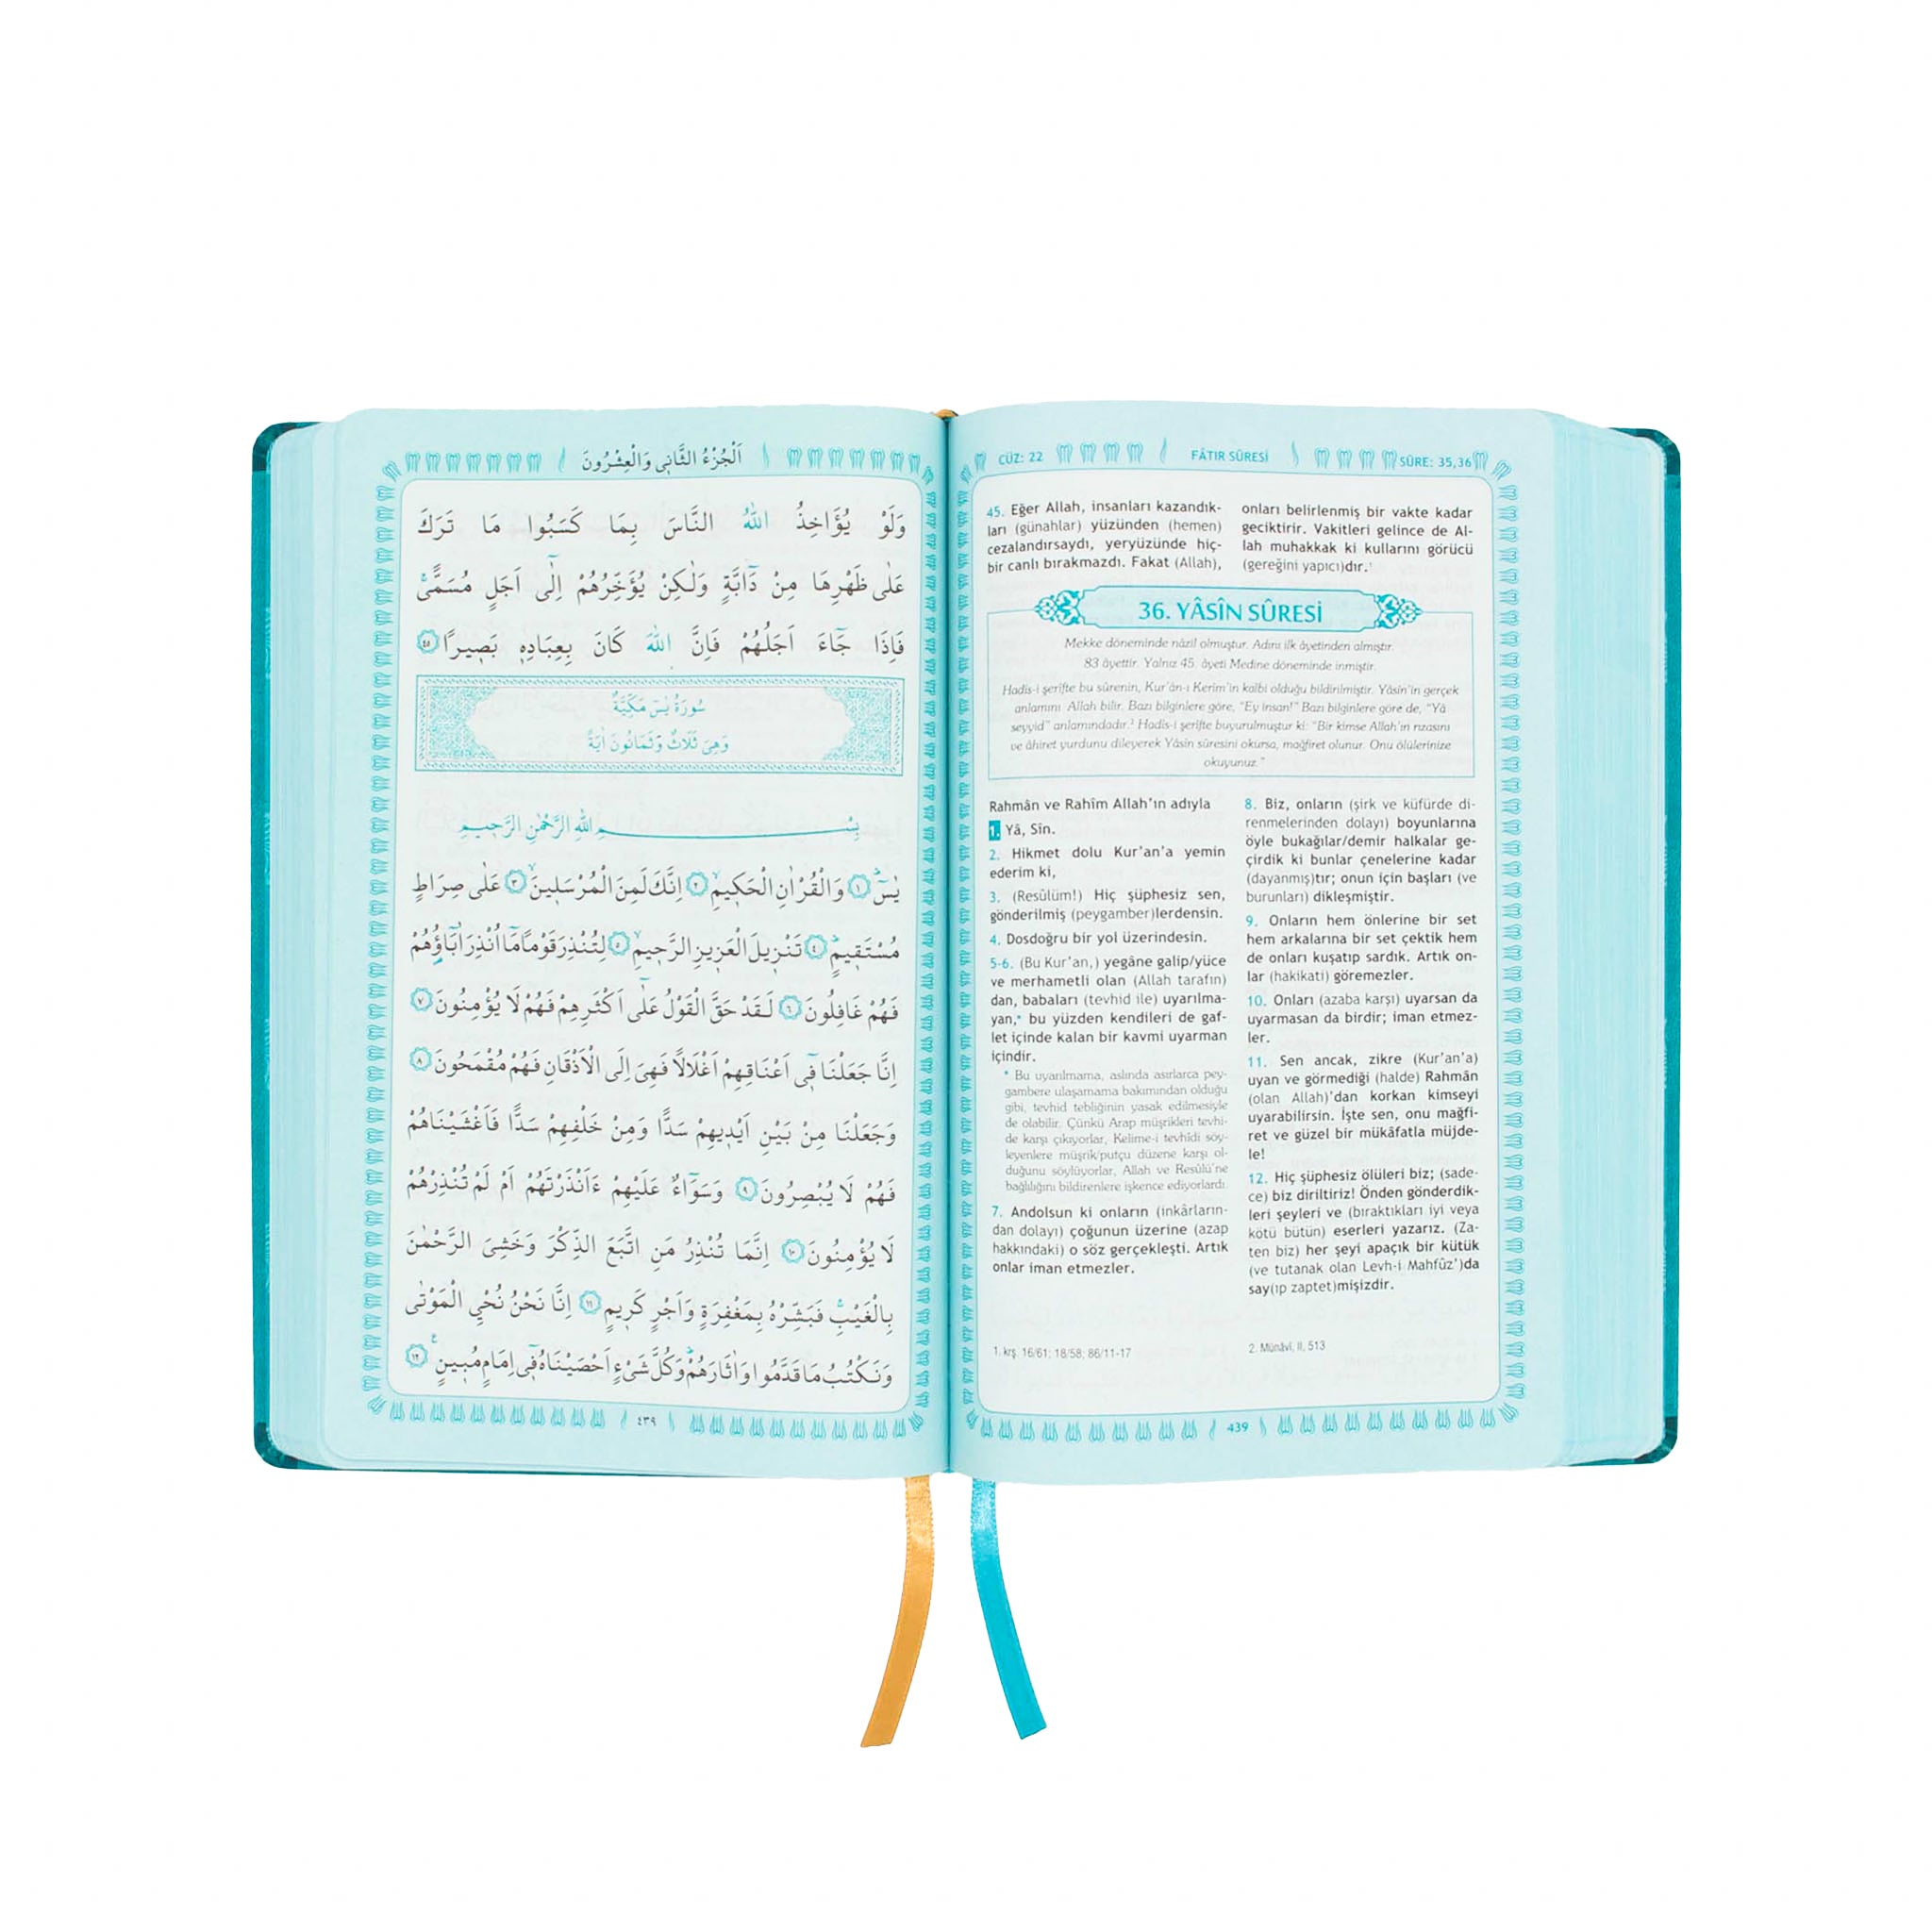 اَلْجُزْءُ الثَّانِي وَالْعِشْرُونَ
وَلَوْ يُؤَاخِذُ اللّٰهُ النَّاسَ بِمَا كَسَبُوا مَا تَرَكَ
عَلٰى ظَهْرِهَا مِنْ دَٓابَّةٍ وَلٰكِنْ يُؤَخِّرُهُمْ اِلٰٓى اَجَلٍ مُسَمًّىۚ
فَاِذَا جَٓاءَ اَجَلُهُمْ فَاِنَّ اللّٰهَ كَانَ بِعِبَادِهٖ بَصٖيراً ٤٥
سُورَةُ يٰسٓ مَكِّيَّةٌ
وَهِيَ ثَلَاثٌ وَثَمَانُونَ اٰيَةً
بِسْمِ اللّٰهِ الرَّحْمٰنِ الرَّحٖيمِ
يٰسٓۜ ١ وَالْقُرْاٰنِ الْحَكٖيمِۙ ٢ اِنَّكَ لَمِنَ الْمُرْسَلٖينَۙ ٣ عَلٰى صِرَاطٍ
مُسْتَقٖيمٍۜ ٤ تَنْزٖيلَ الْعَزٖيزِ الرَّحٖيمِۙ ٥ لِتُنْذِرَ قَوْماً مَٓا اُنْذِرَ اٰبَٓاؤُ۬هُمْ
فَهُمْ غَافِلُونَ ٦ لَقَدْ حَقَّ الْقَوْلُ عَلٰٓى اَكْثَرِهِمْ فَهُمْ لَا يُؤْمِنُونَ ٧
اِنَّا جَعَلْنَا فٖٓي اَعْنَاقِهِمْ اَغْلَالاً فَهِيَ اِلَى الْاَذْقَانِ فَهُمْ مُقْمَحُونَ ٨
وَجَعَلْنَا مِنْ بَيْنِ اَيْدٖيهِمْ سَداًّ وَمِنْ خَلْفِهِمْ سَداًّ فَاَغْشَيْنَاهُمْ
فَهُمْ لَا يُبْصِرُونَ ٩ وَسَوَٓاءٌ عَلَيْهِمْ ءَاَنْذَرْتَهُمْ اَمْ لَمْ تُنْذِرْهُمْ
لَا يُؤْمِنُونَ ١٠ اِنَّمَا تُنْذِرُ مَنِ اتَّبَعَ الذِّكْرَ وَخَشِيَ الرَّحْمٰنَ
بِالْغَيْبِۚ فَبَشِّرْهُ بِمَغْفِرَةٍ وَاَجْرٍ كَرٖيمٍ ١١ اِنَّا نَحْنُ نُحْيِ الْمَوْتٰى
وَنَكْتُبُ مَا قَدَّمُوا وَاٰثَارَهُمْۜ وَكُلَّ شَيْءٍ اَحْصَيْنَاهُ فٖٓي اِمَامٍ مُبٖينٍ ١٢ ع
٤٣٩
CÜZ: 22 FÂTIR SÛRESİ SÛRE: 35,36
45. Eğer Allah, insanları kazandık-
ları (günahlar) yüzünden (hemen)
cezalandırsaydı, yeryüzünde hiç-
bir canlı bırakmazdı. Fakat (Allah),
onları belirlenmiş bir vakte kadar
geciktirir. Vakitleri gelince de Al-
lah muhakkak ki kullarını görücü
(gereğini yapıcı)dır.¹
36. YÂSÎN SÛRESİ
Mekke döneminde nâzil olmuştur. Adını ilk âyetinden almıştır.
83 âyettir. Yalnız 45. âyeti Medine döneminde inmiştir.
Hadis-i şerifte bu sûrenin, Kur'ân-ı Kerim'in kalbi olduğu bildirilmiştir. Yâsîn'in gerçek
anlamını Allah bilir. Bazı bilginlere göre, "Ey insan!" Bazı bilginlere göre de, "Yâ
seyyid" anlamındadır.² Hadis-i şerifte buyurulmuştur ki: "Bir kimse Allah'ın rızasını
ve âhiret yurdunu dileyerek Yâsîn sûresini okursa, mağfiret olunur. Onu ölülerinize
okuyunuz."
Rahmân ve Rahîm Allah'ın adıyla
1. Yâ, Sîn.
2. Hikmet dolu Kur'an'a yemin
ederim ki,
3. (Resûlüm!) Hiç şüphesiz sen,
gönderilmiş (peygamber)lerdensin.
4. Dosdoğru bir yol üzerindesin.
5-6. (Bu Kur'an,) yegâne galip/yüce
ve merhametli olan (Allah tarafın)
dan, babaları (tevhid ile) uyarılma-
yan,* bu yüzden kendileri de gaf-
let içinde kalan bir kavmi uyarman
içindir.
* Bu uyarılmama, aslında asırlarca pey-
gambere ulaşamama bakımından olduğu
gibi, tevhid tebliğinin yasak edilmesiyle
de olabilir. Çünkü Arap müşrikleri tevhi-
de karşı çıkıyorlar, Kelime-i tevhîdi söy-
leyenlere müşrik/putçu düzene karşı ol-
duğunu söylüyorlar, Allah ve Resûlü'ne
bağlılığını bildirenlere işkence ediyorlardı.
7. Andolsun ki onların (inkârların-
dan dolayı) çoğunun üzerine (azap
hakkındaki) o söz gerçekleşti. Artık
onlar iman etmezler.
8. Biz, onların (şirk ve küfürde di-
renmelerinden dolayı) boyunlarına
öyle bukağılar/demir halkalar ge-
çirdik ki bunlar çenelerine kadar
(dayanmış)tır; onun için başları (ve
burunları) dikleşmiştir.
9. Onların hem önlerine bir set
hem arkalarına bir set çektik hem
de onları kuşatıp sardık. Artık on-
lar (hakikati) göremezler.
10. Onları (azaba karşı) uyarsan da
uyarmasan da birdir; iman etmez-
ler.
11. Sen ancak, zikre (Kur'an'a)
uyan ve görmediği (halde) Rahmân
(olan Allah)'dan korkan kimseyi
uyarabilirsin. İşte sen, onu mağfi-
ret ve güzel bir mükâfatla müjde-
le!
12. Hiç şüphesiz ölüleri biz; (sade-
ce) biz diriltiriz! Önden gönderdik-
leri şeyleri ve (bıraktıkları iyi veya
kötü bütün) eserleri yazarız. (Za-
ten biz) her şeyi apaçık bir kütük
(ve tutanak olan Levh-i Mahfûz')da
say(ıp zaptet)mişizdir.
1. krş. 16/61; 18/58; 86/11-17
2. Münâvî, II, 513
439